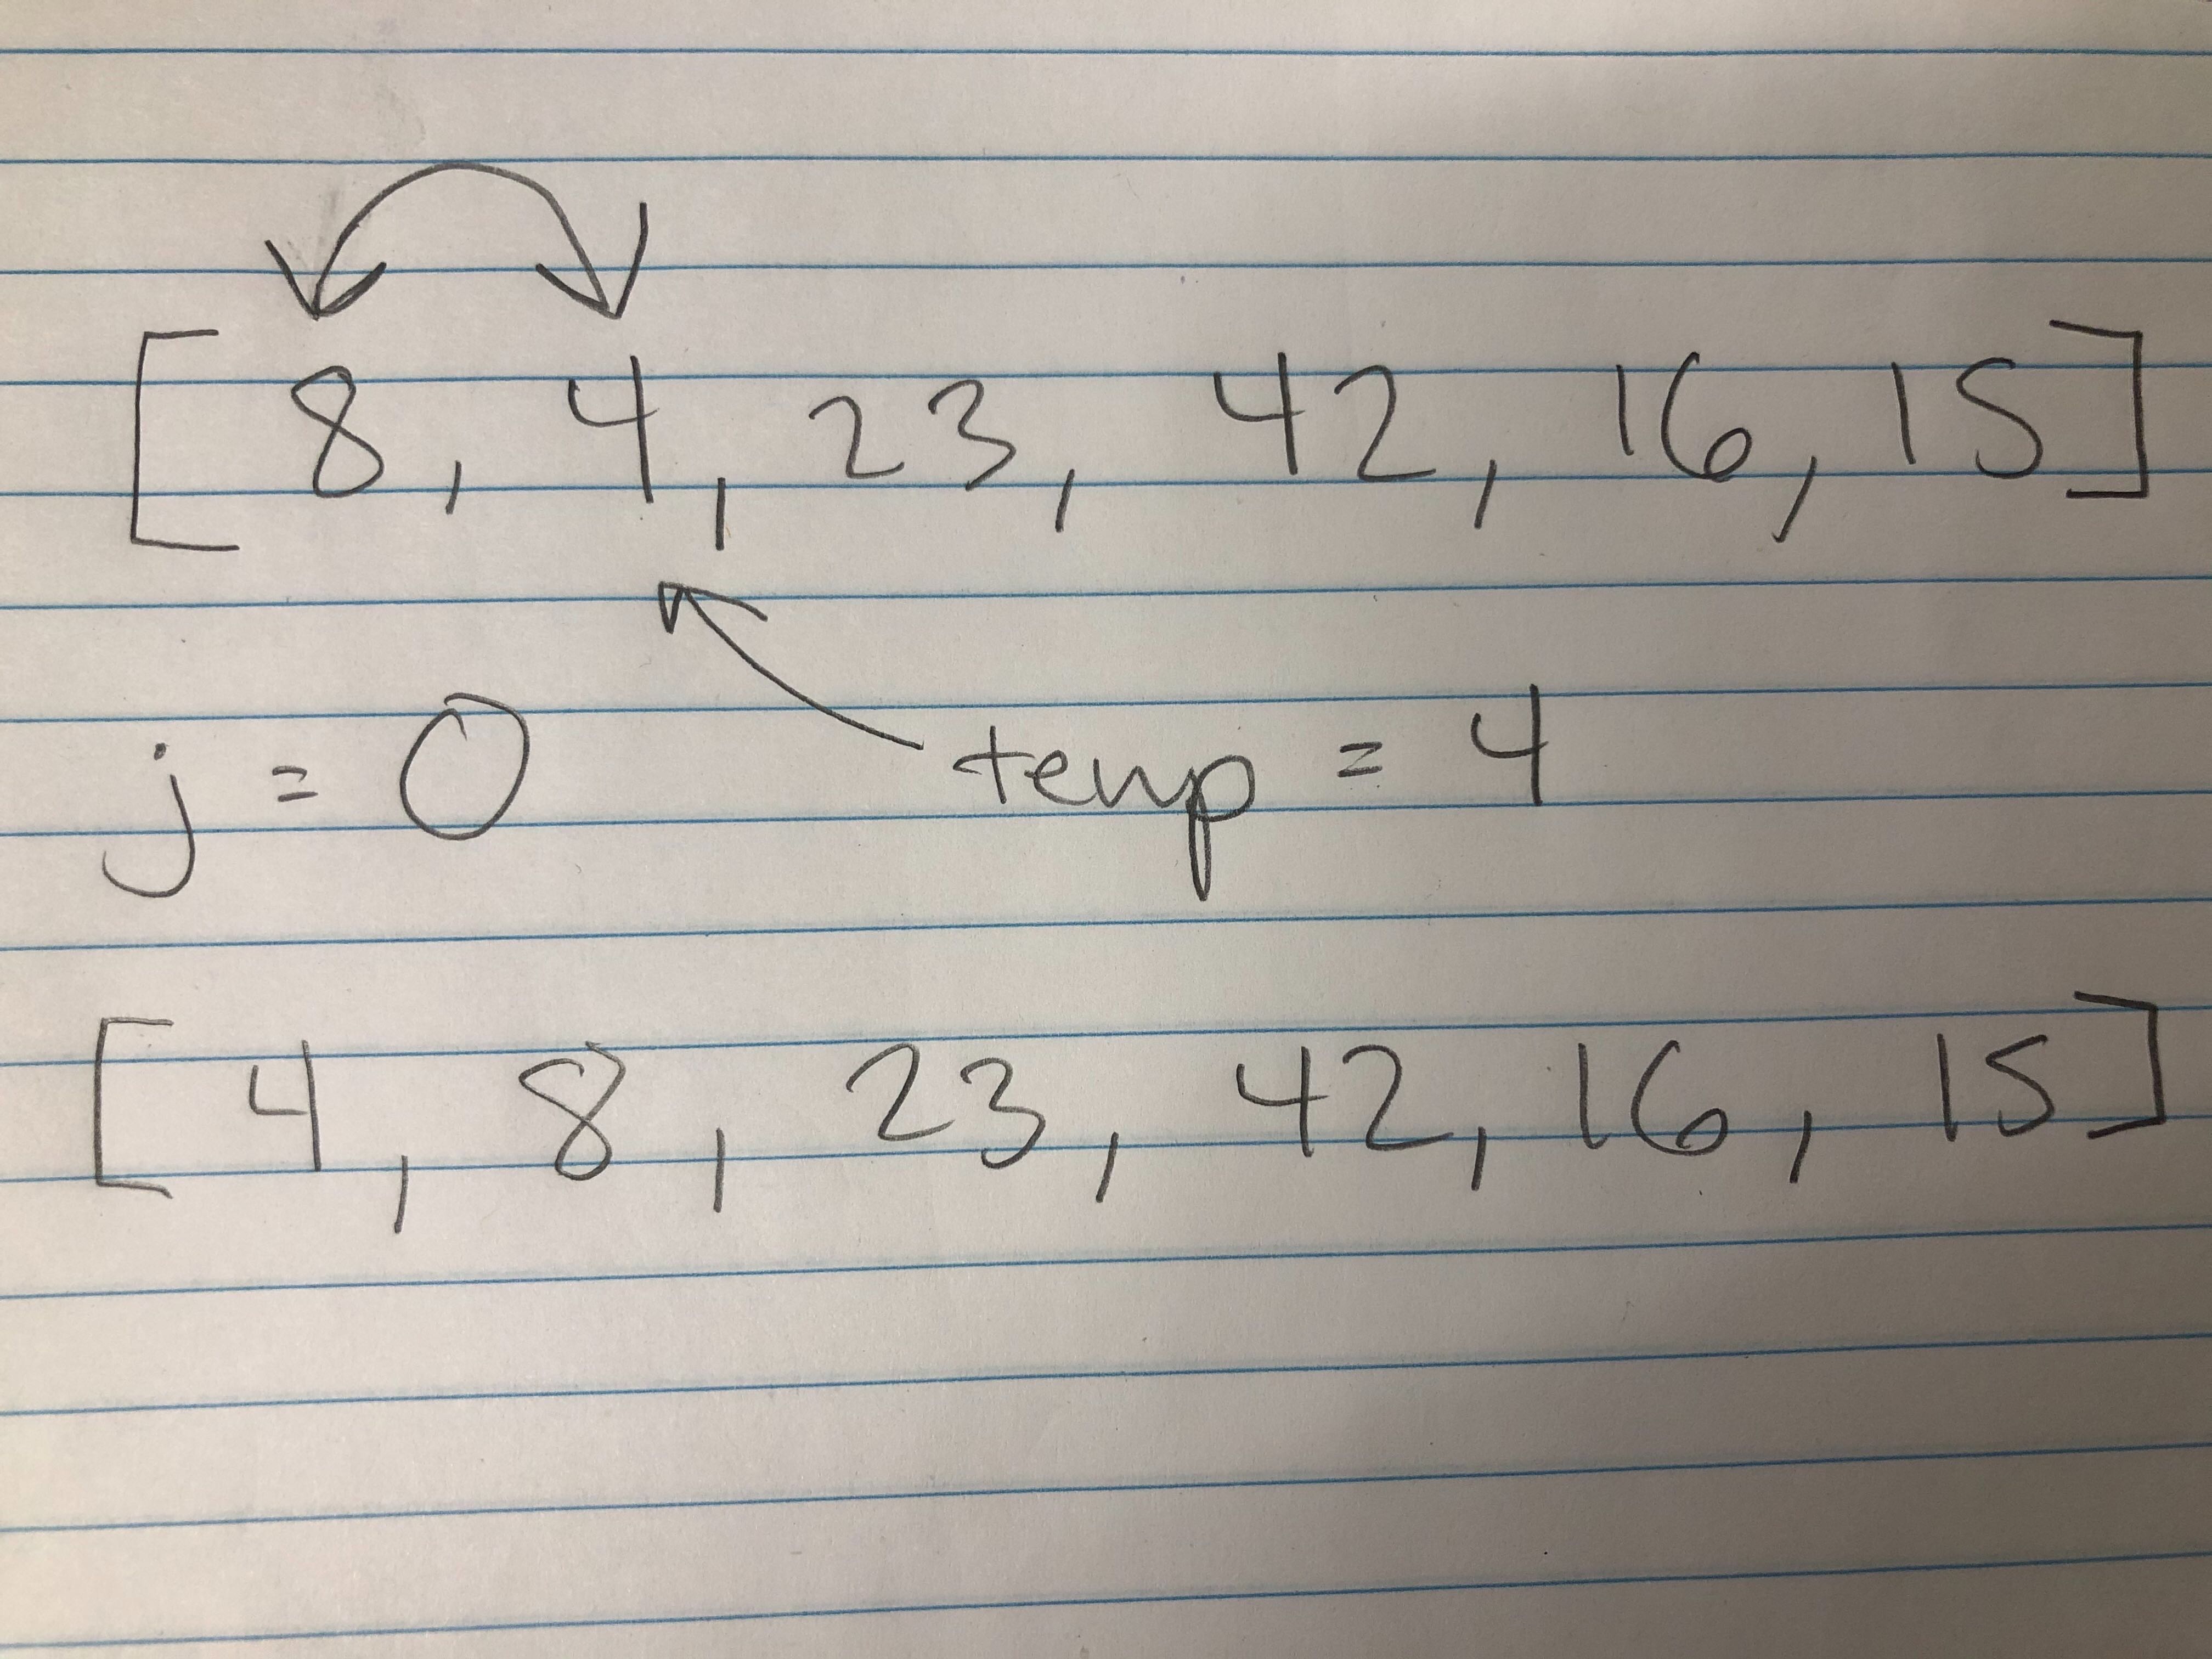 [ 8, 4, 23, 42, 16, 15 ]
j = 0 temp = 4
[ 4, 8, 23, 42, 16, 15 ]